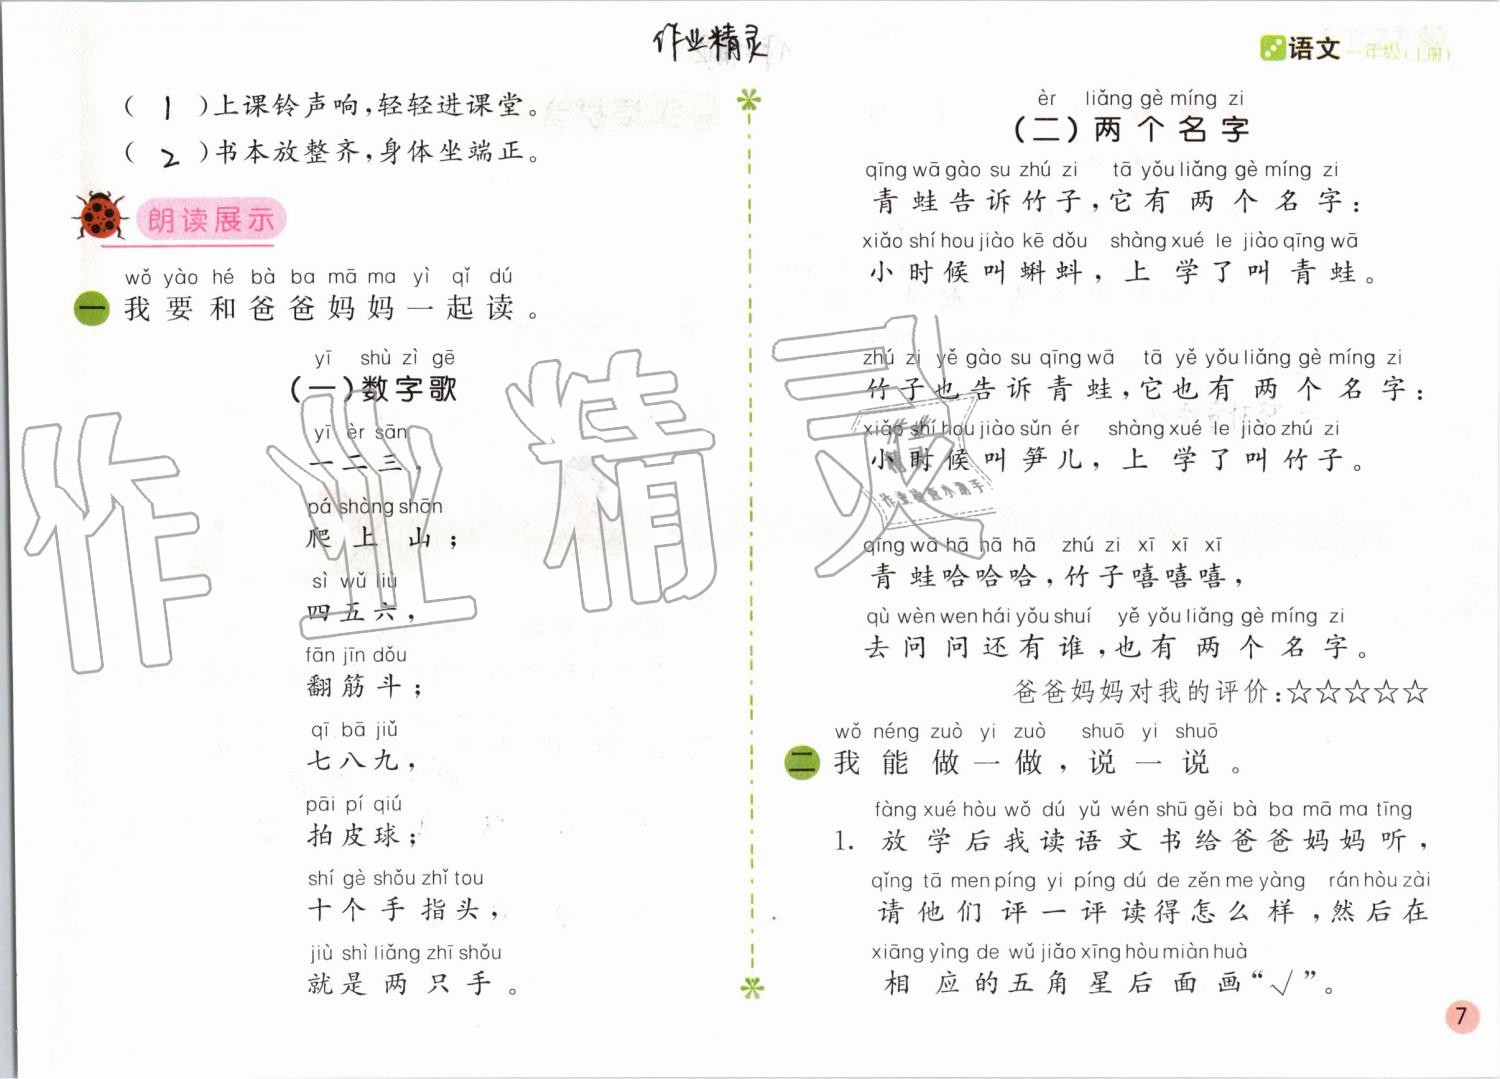 作业精灵
语文一年级(上册)
( 1 )上课铃声响,轻轻进课堂。
( 2 )书本放整齐,身体坐端正。
朗读展示
wǒ yào hé bà ba mā ma yì qǐ dú
一 我要和爸爸妈妈一起读。
yī shù zì gē
(一)数字歌
yī èr sān
一二三,
pá shàng shān
爬上山;
sì wǔ liù
四五六,
fān jīn dǒu
翻筋斗;
qī bā jiǔ
七八九,
pāi pí qiú
拍皮球;
shí gè shǒu zhǐ tou
十个手指头,
jiù shì liǎng zhī shǒu
就是两只手。
èr liǎng gè míng zi
(二)两个名字
qīng wā gào su zhú zi tā yǒu liǎng gè míng zi
青蛙告诉竹子,它有两个名字:
xiǎo shí hou jiào kē dǒu shàng xué le jiào qīng wā
小时候叫蝌蚪,上学了叫青蛙。
zhú zi yě gào su qīng wā tā yě yǒu liǎng gè míng zi
竹子也告诉青蛙,它也有两个名字:
xiǎo shí hou jiào sǔn ér shàng xué le jiào zhú zi
小时候叫笋儿,上学了叫竹子。
qīng wā hā hā hā zhú zi xī xī xī
青蛙哈哈哈,竹子嘻嘻嘻,
qù wèn wen hái yǒu shuí yě yǒu liǎng gè míng zi
去问问还有谁,也有两个名字。
爸爸妈妈对我的评价:☆☆☆☆☆
wǒ néng zuò yi zuò shuō yi shuō
二 我能做一做,说一说。
fàng xué hòu wǒ dú yǔ wén shū gěi bà ba mā ma tīng
1. 放学后我读语文书给爸爸妈妈听,
qǐng tā men píng yi píng dú de zěn me yàng rán hòu zài
请他们评一评读得怎么样,然后在
xiāng yìng de wǔ jiǎo xīng hòu miàn huà
相应的五角星后面画“√”。
7
作业精灵
作业精灵
作业检查小助手